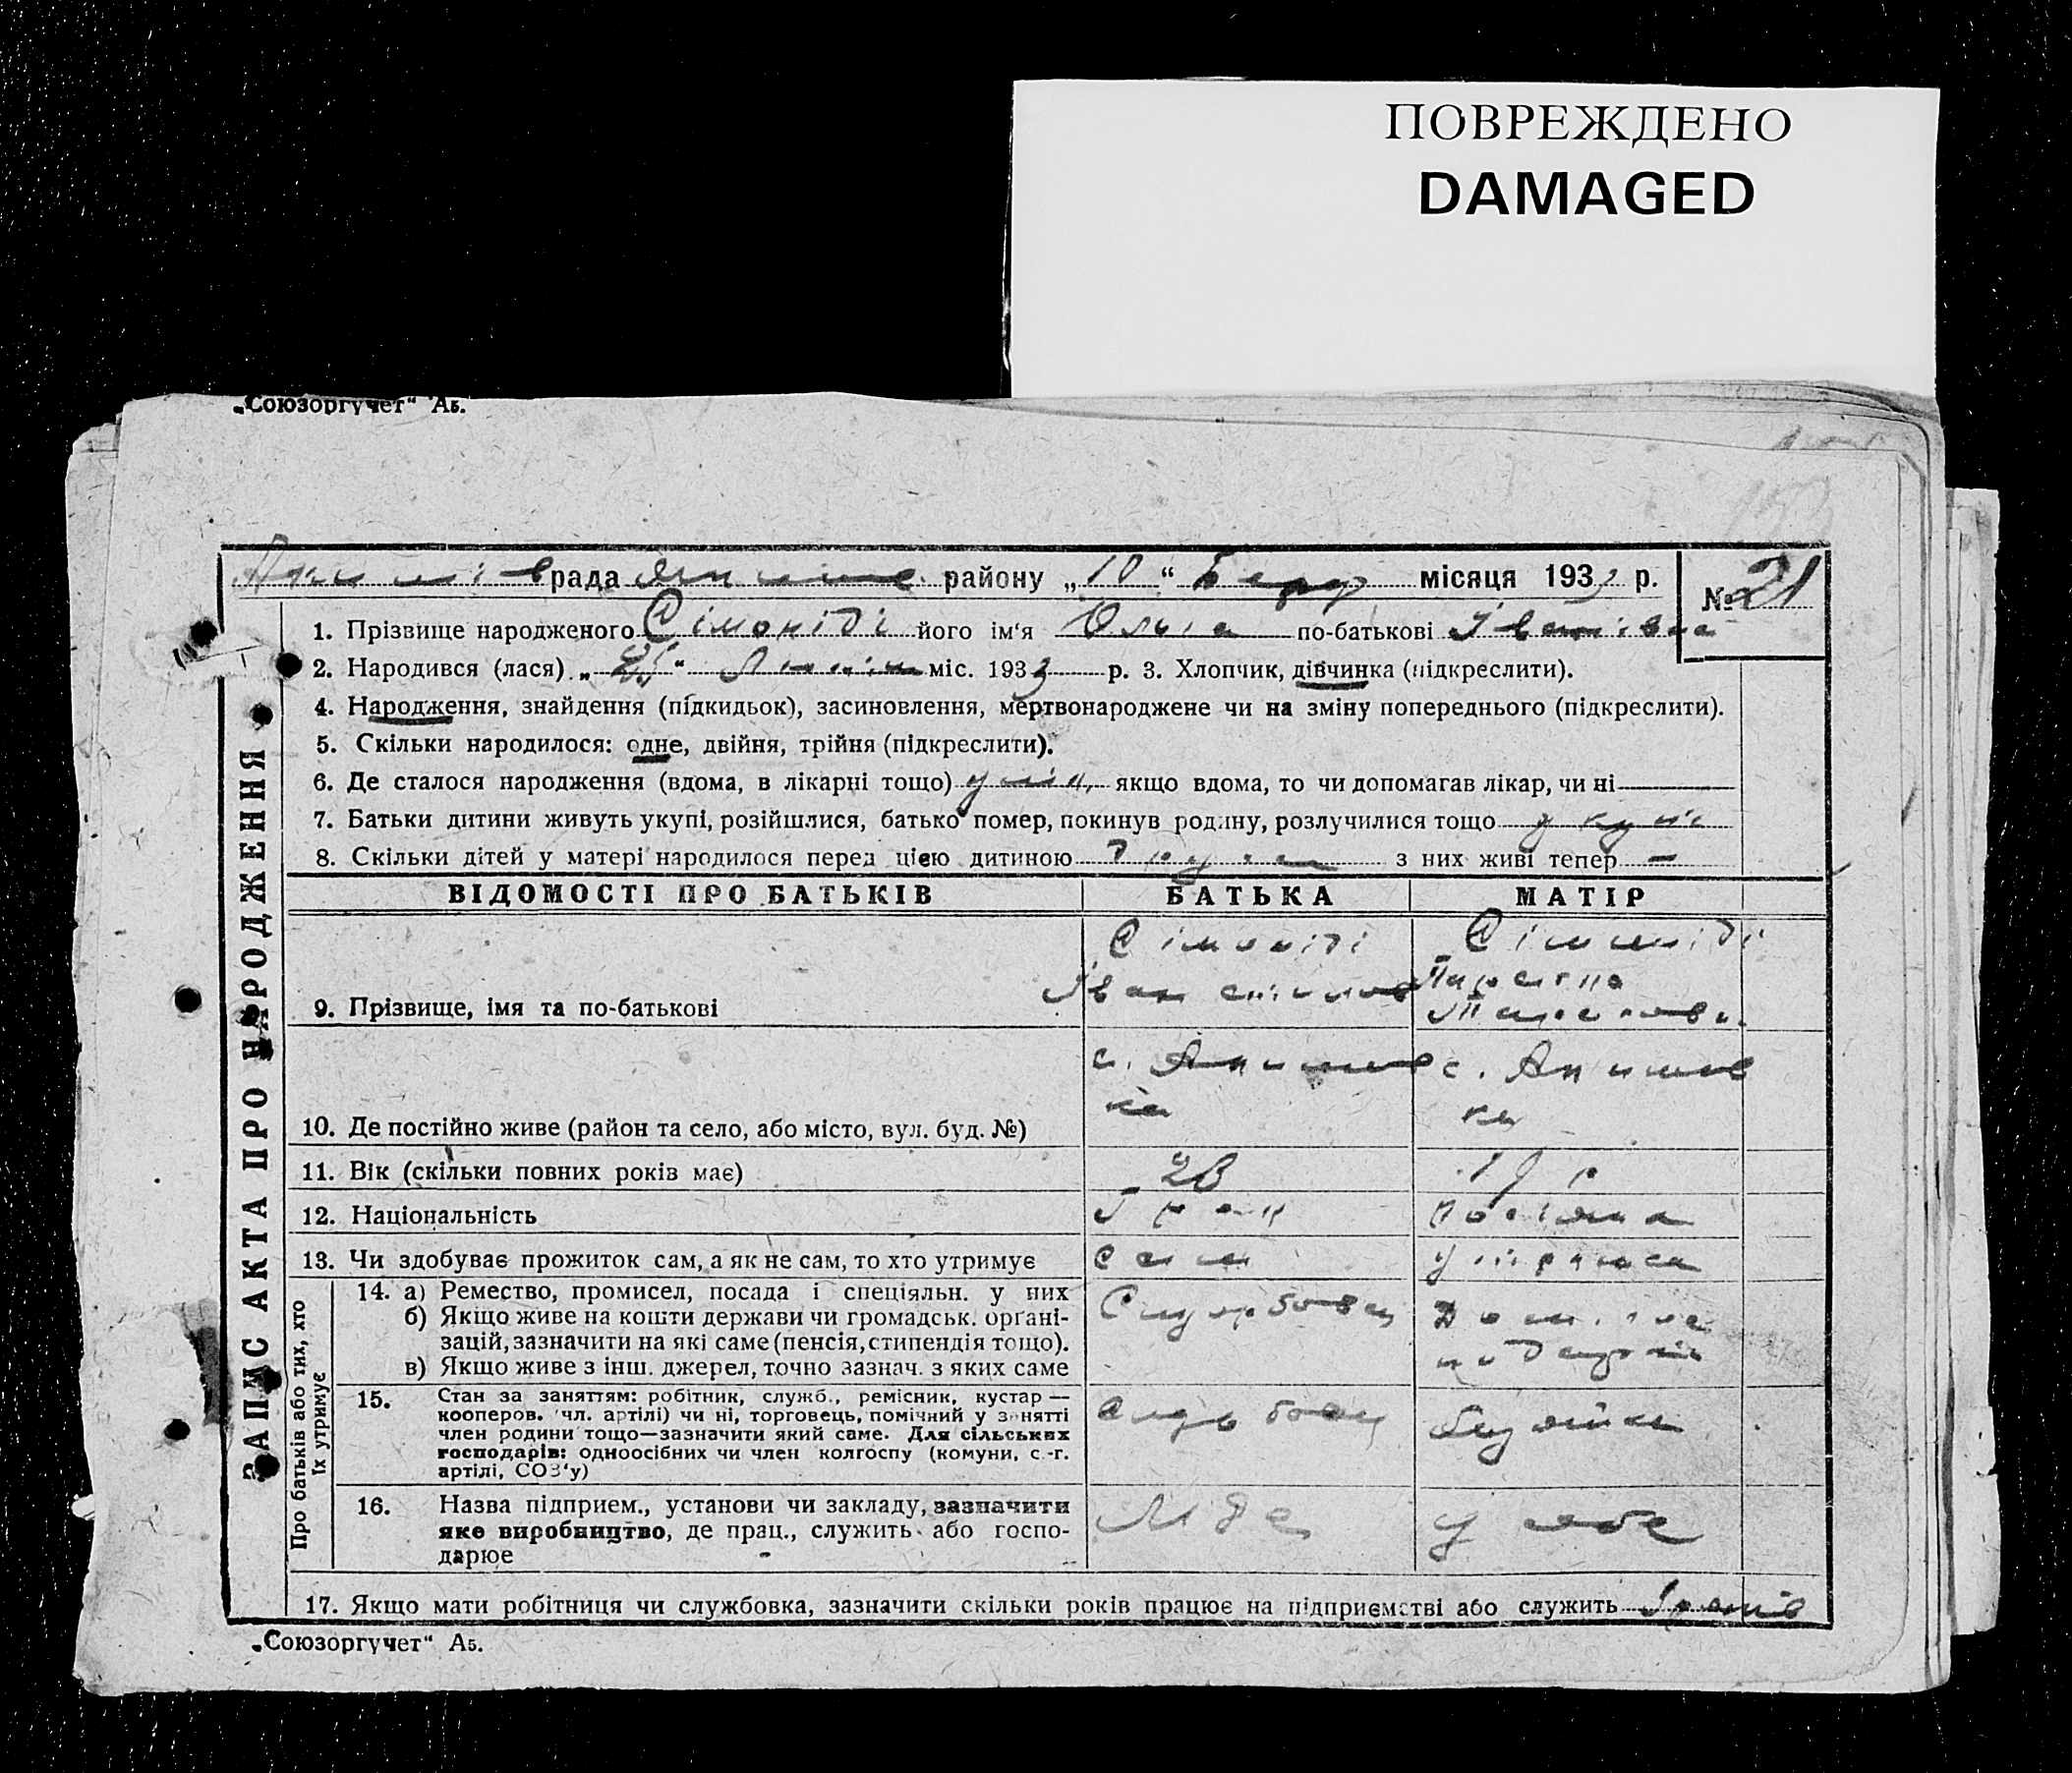 ПОВРЕЖДЕНО
DAMAGED
„Союзоргучет“ Аб.
рада району „10“ місяця 1933 р. № 21
1. Прізвище народженого Сімоніді його ім‘я Ольга по-батькові Іванівна
2. Народився (лася) „25“ міс. 1933 р. 3. Хлопчик, дівчинка (підкреслити).
4. Народження, знайдення (підкидьок), засиновлення, мертвонароджене чи на зміну попереднього (підкреслити).
5. Скільки народилося: одне, двійня, трійня (підкреслити).
6. Де сталося народження (вдома, в лікарні тощо) якщо вдома, то чи допомагав лікар, чи ні
7. Батьки дитини живуть укупі, розійшлися, батько помер, покинув родину, розлучилися тощо укупі
8. Скільки дітей у матері народилося перед цією дитиною з них живі тепер —
ВІДОМОСТІ ПРО БАТЬКІВ БАТЬКА МАТІР
Сімоніді Сімоніді
Іван
9. Прізвище, імя та по-батькові
с. с.
ка ка
10. Де постійно живе (район та село, або місто, вул. буд. №)
11. Вік (скільки повних років має) 28 19 р
12. Національність Грек
13. Чи здобуває прожиток сам, а як не сам, то хто утримує сам
14. а) Ремество, промисел, посада і спеціяльн. у них Службовец
б) Якщо живе на кошти держави чи громадськ. органі-
зацій, зазначити на які саме (пенсія, стипендія тощо).
в) Якщо живе з інш. джерел, точно зазнач. з яких саме
15. Стан за заняттям: робітник, служб., ремісник, кустар — службовец
кооперов. чл. артілі) чи ні, торговець, помічний у занятті
член родини тощо—зазначити який саме. Для сільських
господарів: одноосібних чи член колгоспу (комуни, с.-г.
артілі, СОЗ‘у)
16. Назва підприєм., установи чи закладу, зазначити
яке виробництво, де прац., служить або госпо-
дарює
17. Якщо мати робітниця чи службовка, зазначити скільки років працює на підприємстві або служить
„Союзоргучет“ Аб.
ЗАПИС АКТА ПРО НАРОДЖЕННЯ
Про батьків або тих, хто
їх утримує